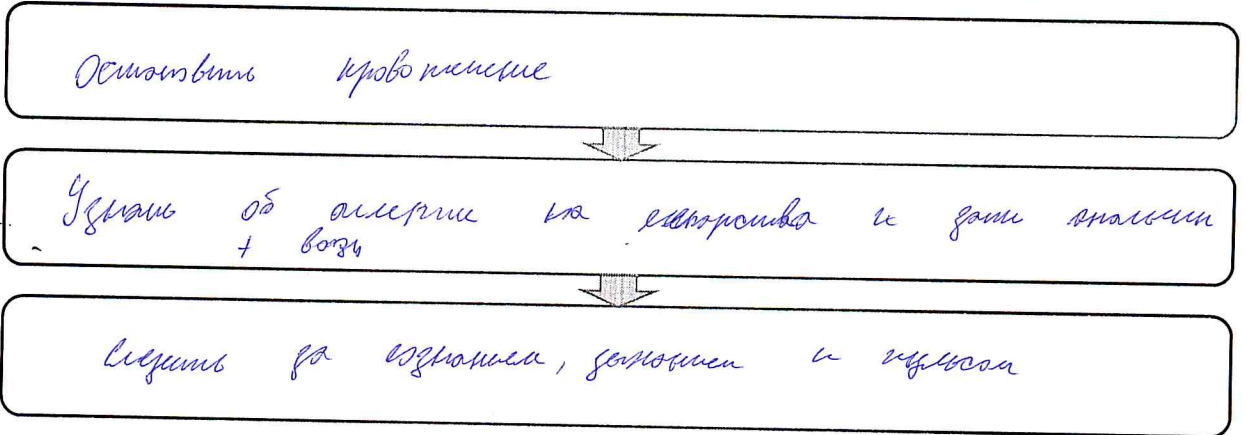 Остановить кровотечение
Узнать об алергии на лекарства и дать анальгин
+ воду
Следить за сознанием, дыханием и пульсом